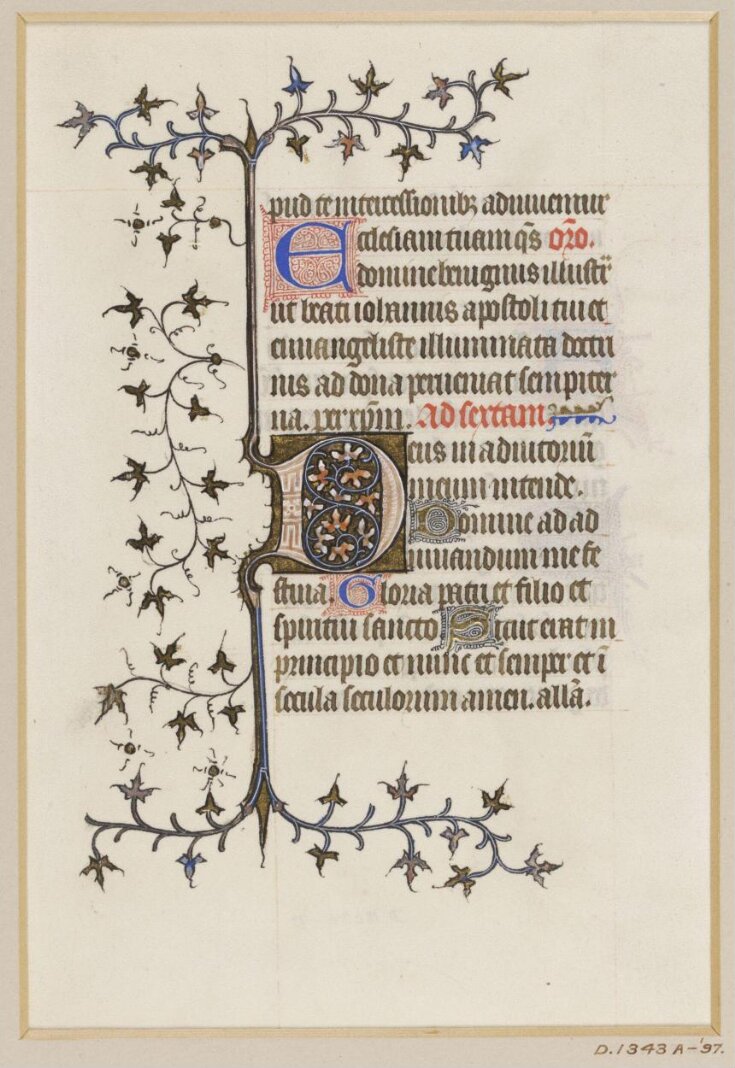 pud te intercessionibꝫ adiuuentur
Ecclesiam tuam q̄s or̄o.
domine benignus illustr̄
ut beati iohannis apostoli tui et
euuangeliste illuminata doctri
nis ad dona perueniat sempiter
na. per xp̄m. Ad sextam.
Deus in adiutoriū
meum intende.
Domine ad ad
iuuandum me fe
stina. Gloria patri et filio et
spiritui sancto Sicut erat in
principio et nunc et semper et ī
secula seculorum amen. allā.
D.1343A-'97.